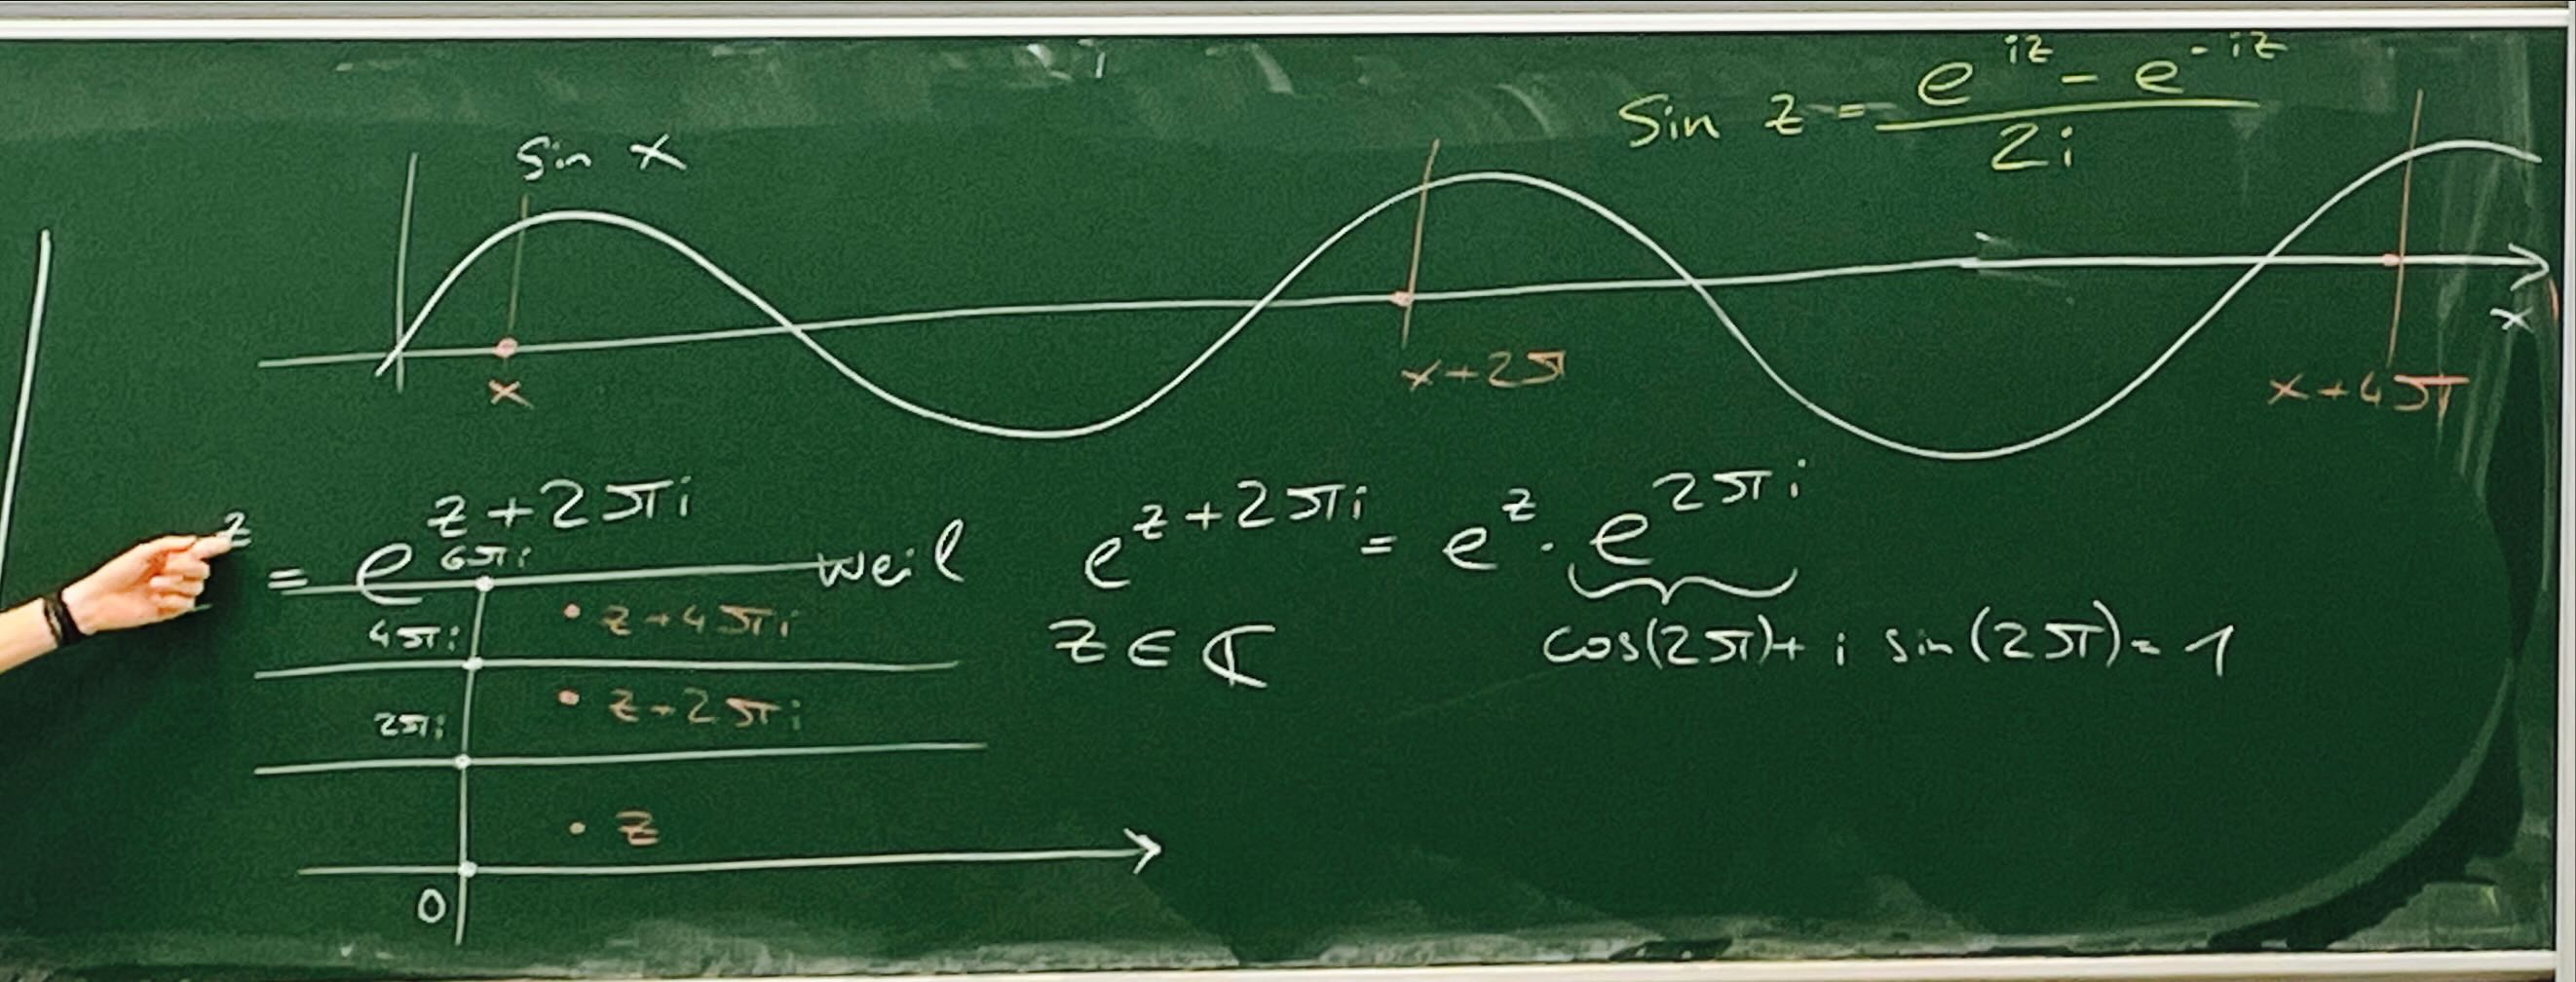 sin z = (e^{iz} - e^{-iz}) / 2i
sin x
x
x
x+2π
x+4π
z = e^{z+2πi} weil e^{z+2πi} = e^z · e^{2πi}
z ∈ ℂ
cos(2π) + i sin(2π) = 1
6πi
4πi
2πi
0
z+4πi
z+2πi
z